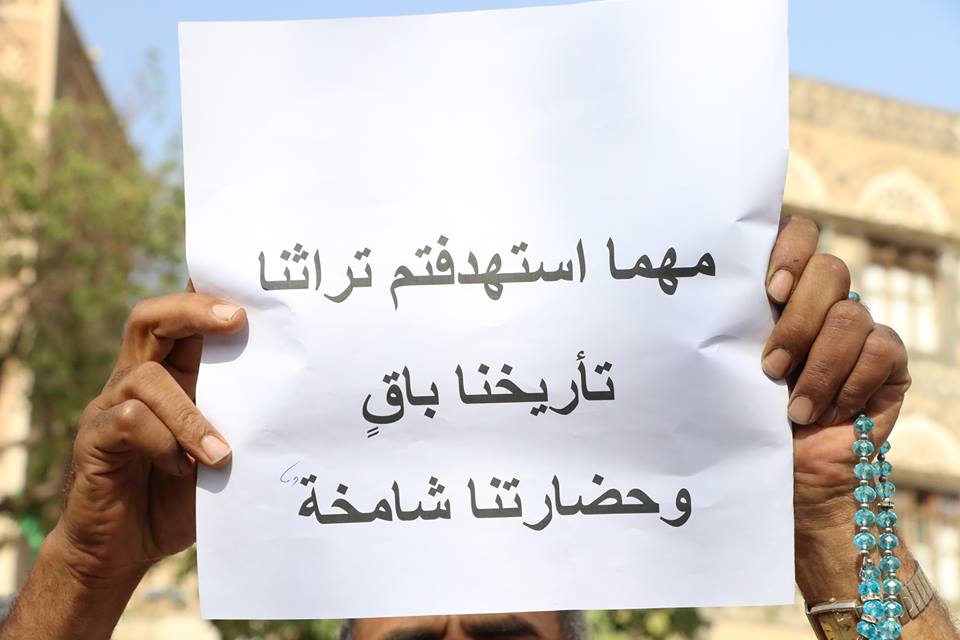 مهما استهدفتم تراثنا
تأريخنا باقٍ
وحضارتنا شامخة